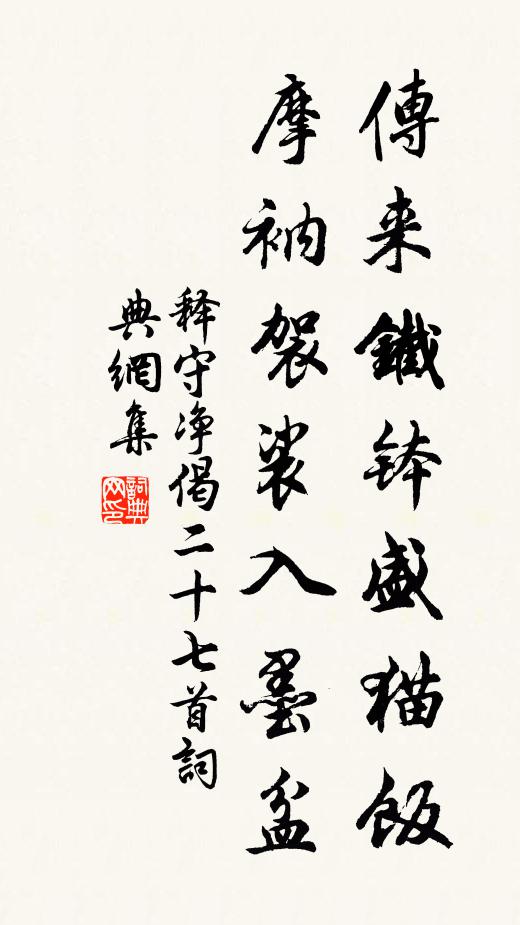 傳来鐵鉢盛猫飯
摩衲袈裟入墨盆
释守净偈二十七首詞
典網集
詞典网印